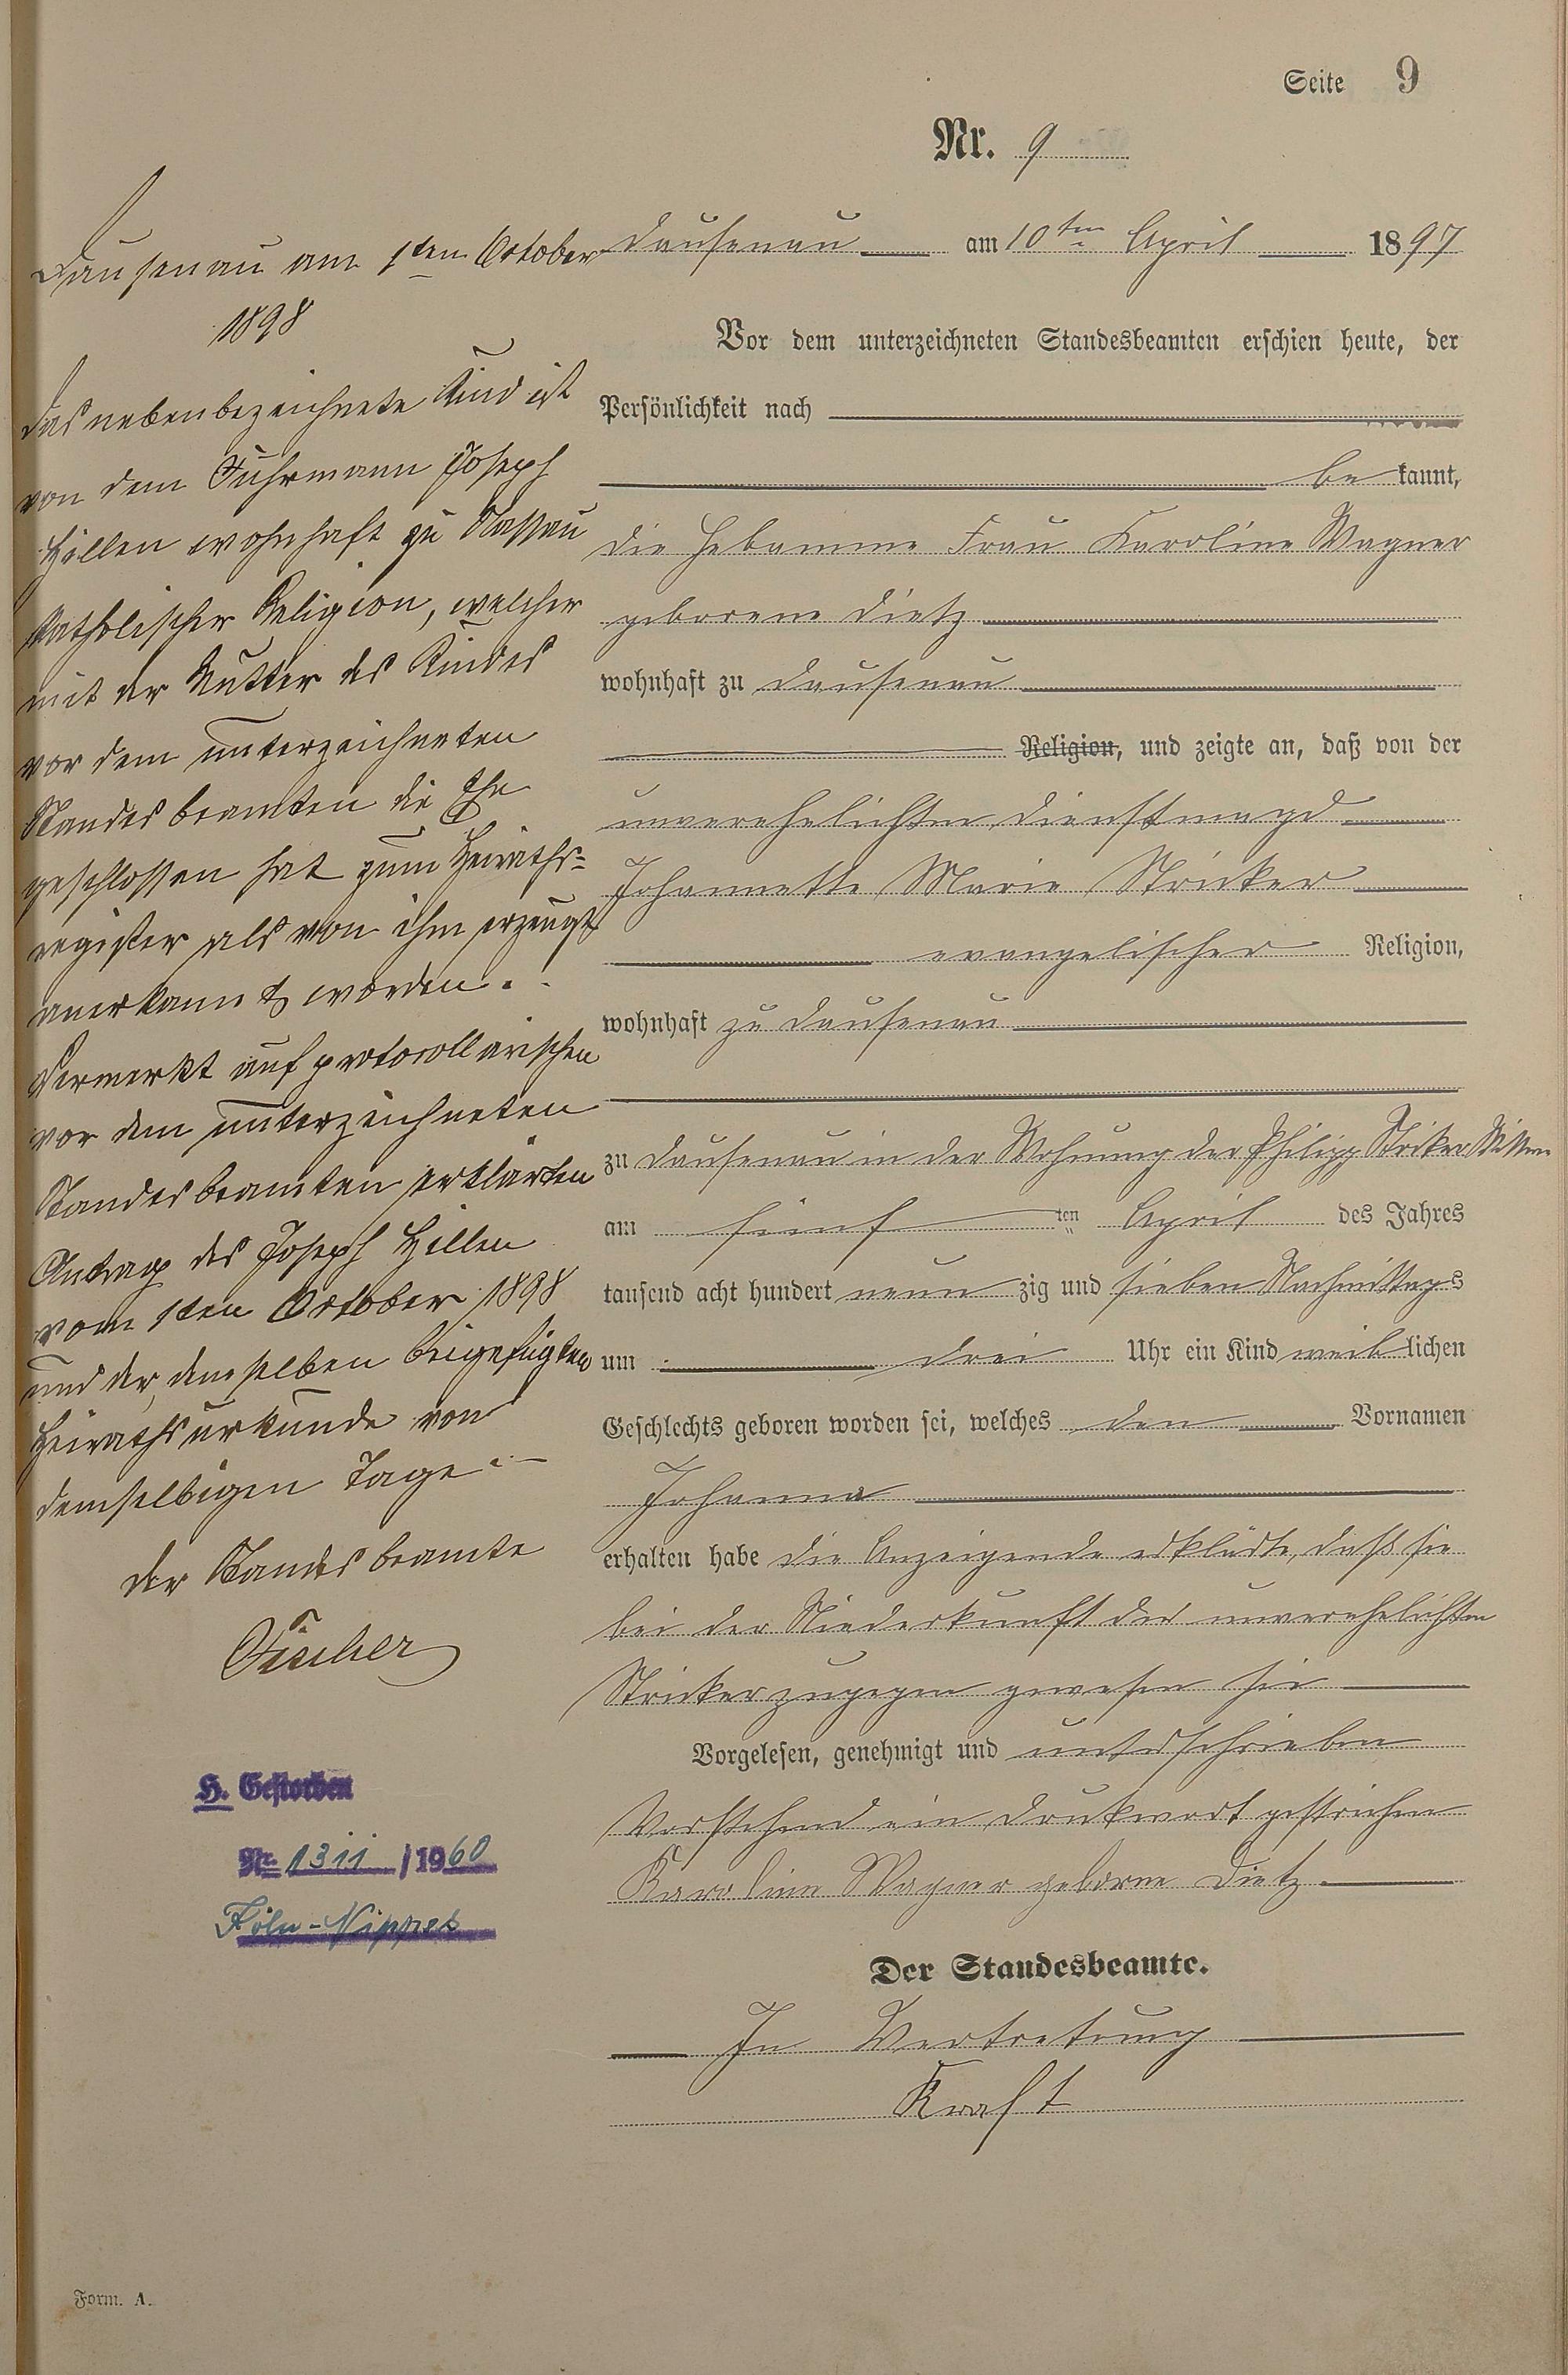 Seite 9
Nr. 9
Dausenau am 10ten April 1897
Vor dem unterzeichneten Standesbeamten erschien heute, der
Persönlichkeit nach
be kannt,
die Hebamme Frau Karoline Wagner
geborene Dietz
wohnhaft zu Dausenau
Religion, und zeigte an, daß von der
unverehelichten Dienstmagd
Johannette Marie Stricker
evangelischer Religion,
wohnhaft zu Dausenau
zu Dausenau in der Wohnung der Philipp Stricker
am fünf ten April des Jahres
tausend acht hundert neun zig und sieben Nachmittags
um drei Uhr ein Kind weib lichen
Geschlechts geboren worden sei, welches den Vornamen
Johanna
erhalten habe die Anzeigende erklärte, daß sie
bei der Niederkunft der unverehelichten
Stricker zugegen gewesen sei
Vorgelesen, genehmigt und unterschrieben
Vorstehend ein Druckwort gestrichen
Karoline Wagner geborne Dietz
Der Standesbeamte.
In Vertretung
Kraft
Dausenau am 1ten October
1898
Das nebenbezeichnete Kind ist
von dem Fuhrmann Joseph
Hillen wohnhaft zu Nassau
katholischer Religion, welcher
mit der Mutter des Kindes
vor dem unterzeichneten
Standesbeamten die Ehe
geschlossen hat zum Heiraths-
register als von ihm erzeugt
anerkannt worden.
Vermerkt auf protocollarischen
vor dem unterzeichneten
Standesbeamten erklärten
Antrag des Joseph Hillen
vom 1ten October 1898
und der, demselben beigefügten
Heirathsurkunde von
demselbigen Tage.
Der Standesbeamte
Fischer
H. Gestorben
Nr. 1311 /1960
Köln-Nippes
Form. A.